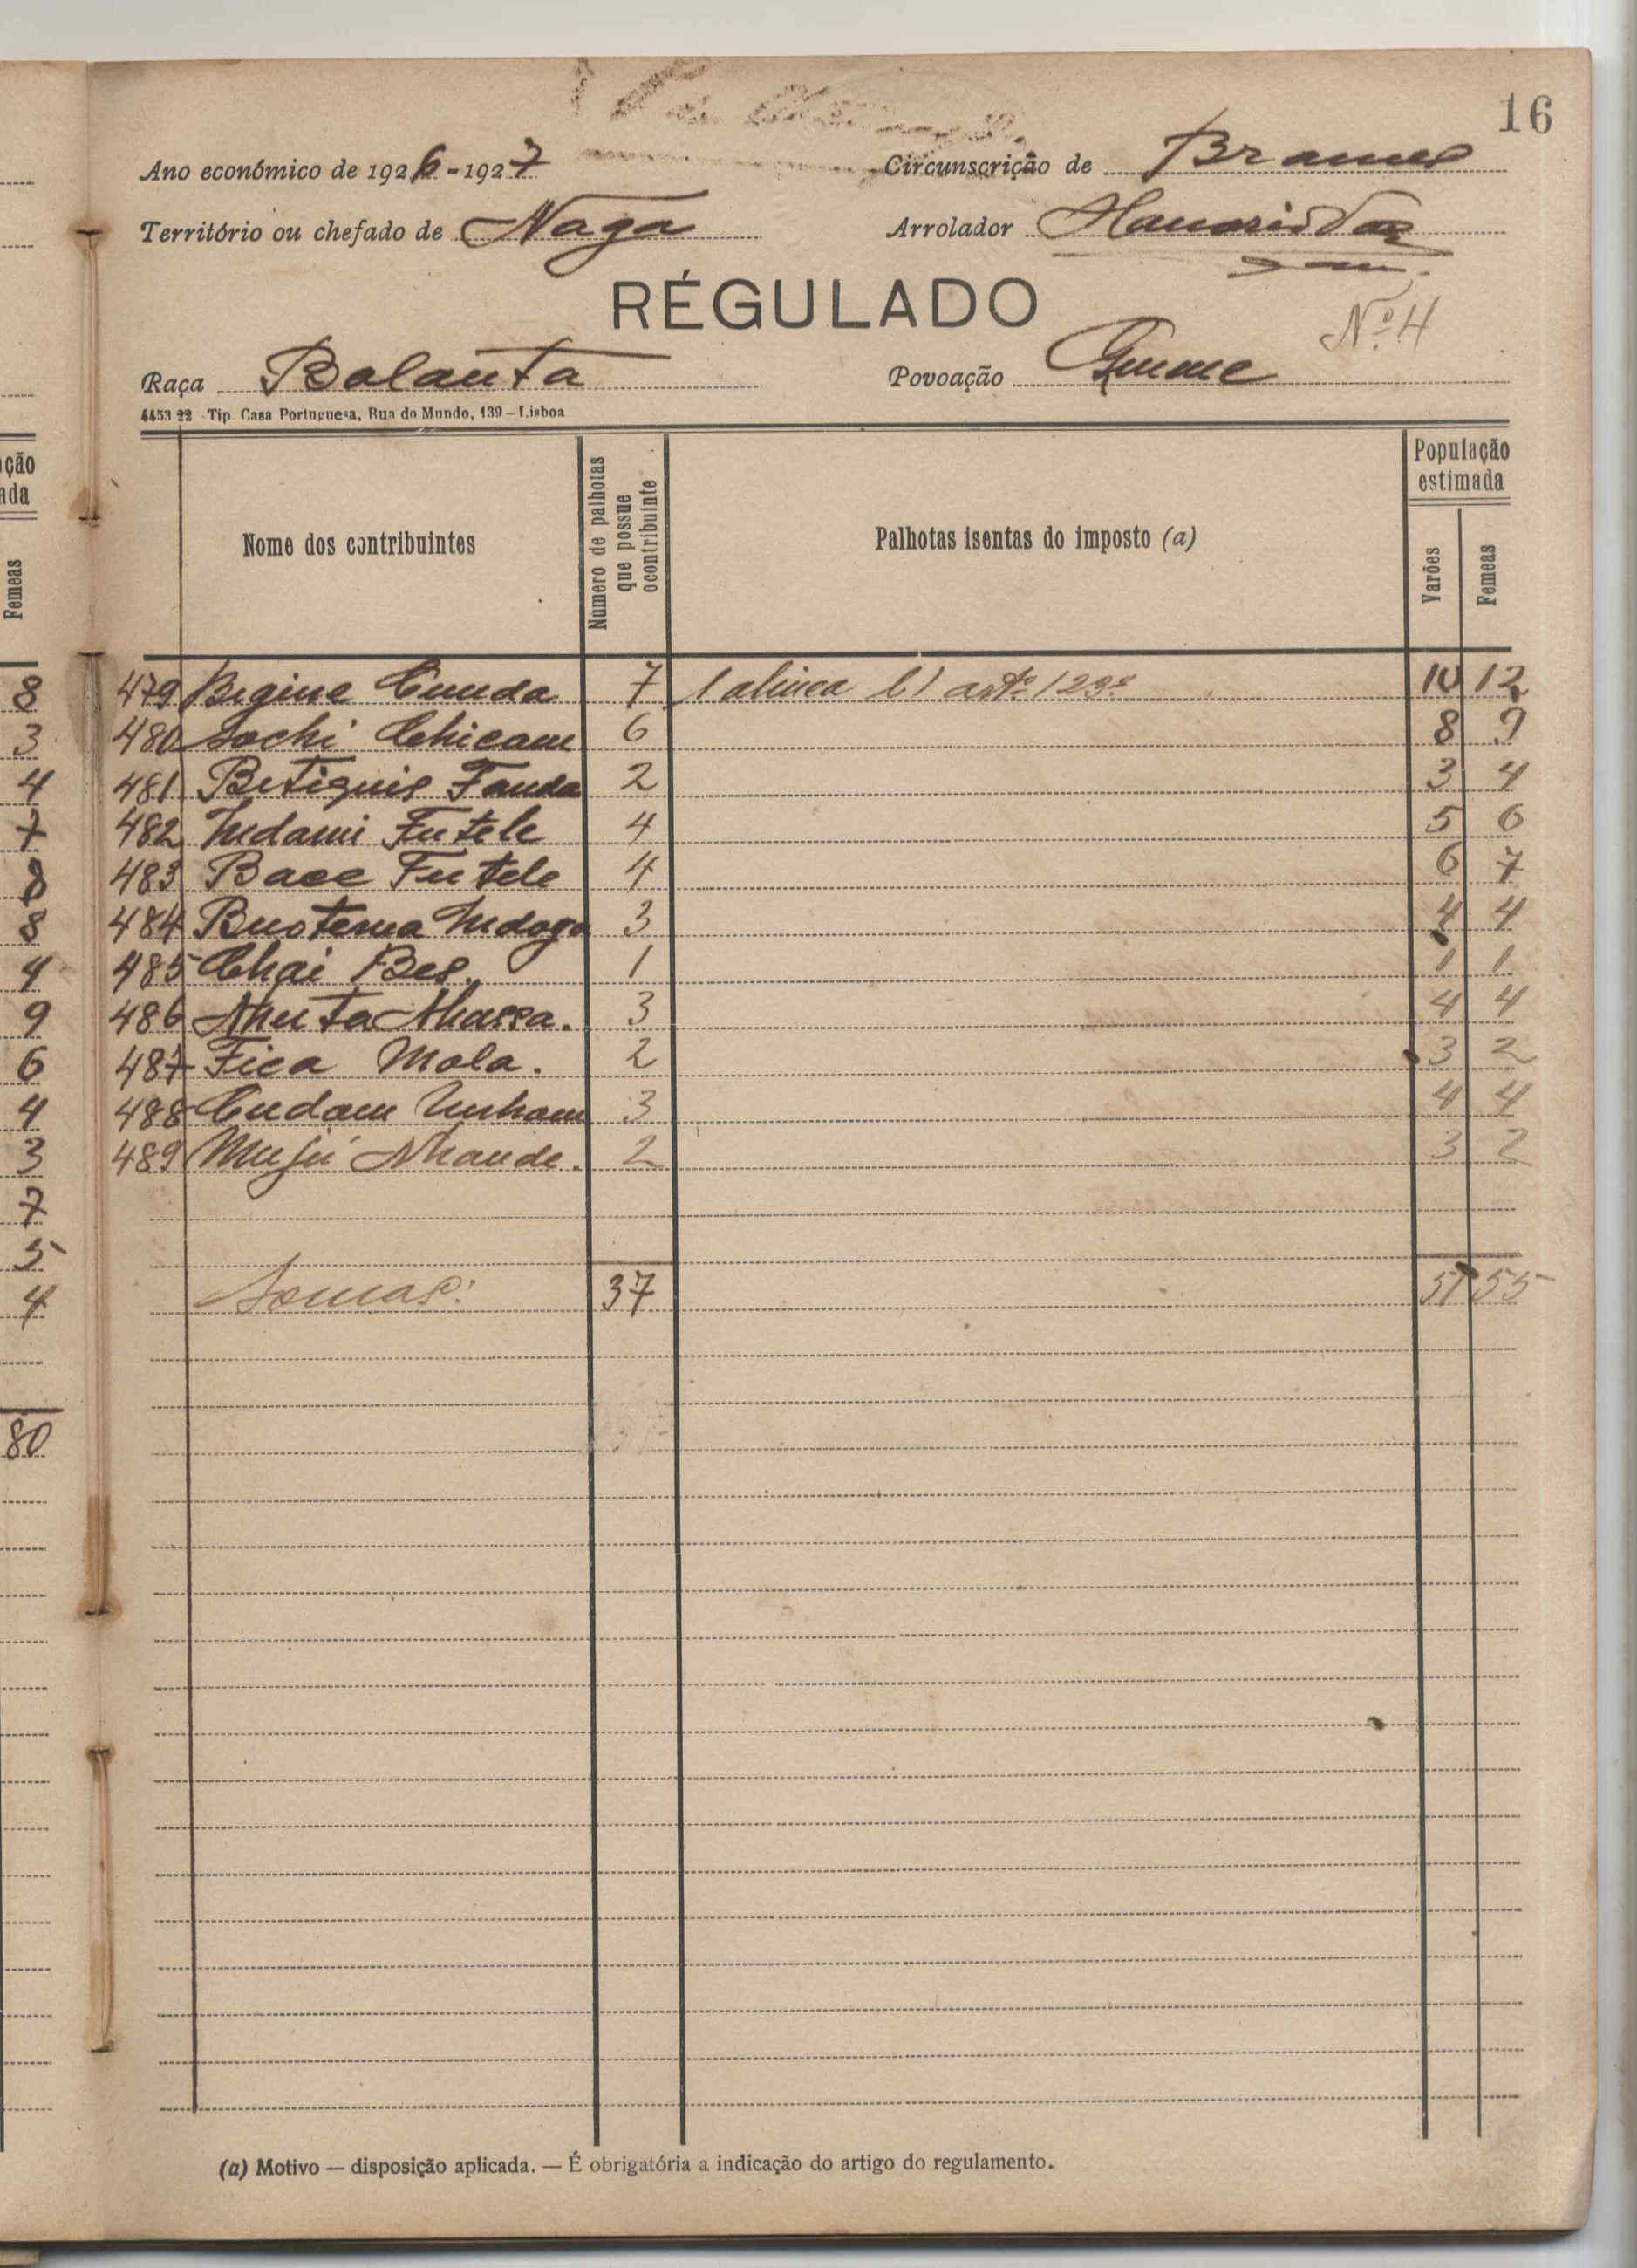 16
Ano económico de 1926-1927 Circunscrição de Brames
Território ou chefado de Naga Arrolador Vaz
RÉGULADO
Nº 4
Raça Balanta Povoação
4453 22 Tip. Casa Portuguesa, Rua do Mundo, 139 – Lisboa
Nome dos contribuintes Número de palhotas que possue o contribuinte Palhotas isentas do imposto (a) População estimada Varões Femeas
479 Begine Cunda 7 1 alinea b) artº 129º 10 12
480 Sochi Chicam 6 8 9
481 Betiquis Fanda 2 3 4
482 Indami Futele 4 5 6
483 Bace Futele 4 6 7
484 3 4 4
485 Chai Bes. 1 1 1
486 Nhuta Nhassa. 3 4 4
487 Fica Mola. 2 3 2
488 Cudam 3 4 4
489 Nhande. 2 3 2
Somas: 37 51 55
(a) Motivo — disposição aplicada. — É obrigatória a indicação do artigo do regulamento.
ção
ada
Femeas
8
3
4
7
8
8
4
9
6
4
3
7
5
4
80